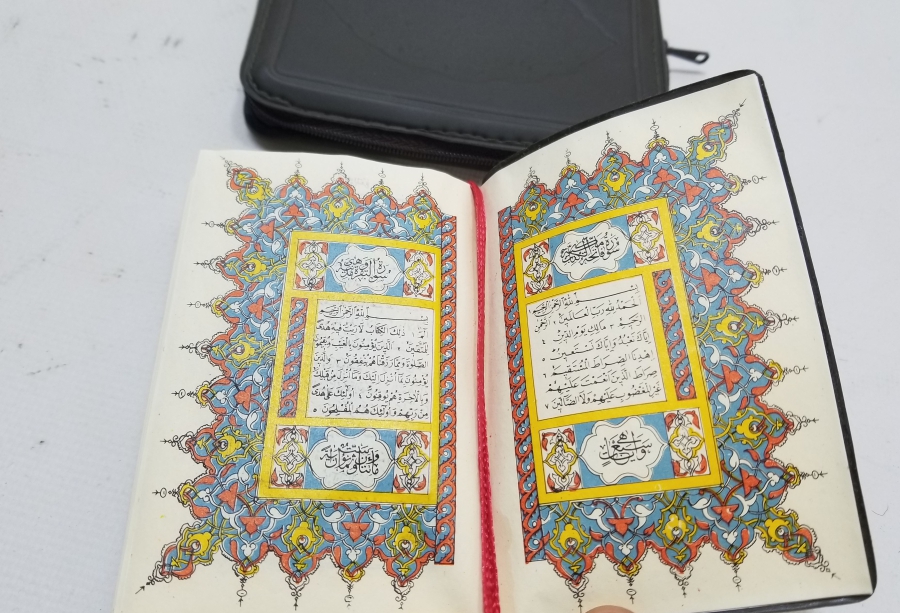 سورة فاتحة الكتاب
بسم الله الرحمن الرحيم
الحمد لله رب العالمين ١ الرحمن
الرحيم ٢ مالك يوم الدين ٣
إياك نعبد وإياك نستعين ٤
اهدنا الصراط المستقيم ٥
صراط الذين أنعمت عليهم ٦
غير المغضوب عليهم ولا الضالين ٧
وهي سبع آيات
سورة البقرة وهي مدنية
بسم الله الرحمن الرحيم
الم ١ ذلك الكتاب لا ريب فيه هدى
للمتقين ٢ الذين يؤمنون بالغيب ويقيمون
الصلوة ومما رزقناهم ينفقون ٣ والذين
يؤمنون بما أنزل إليك وما أنزل من قبلك
وبالآخرة هم يوقنون ٤ أولئك على هدى
من ربهم وأولئك هم المفلحون ٥